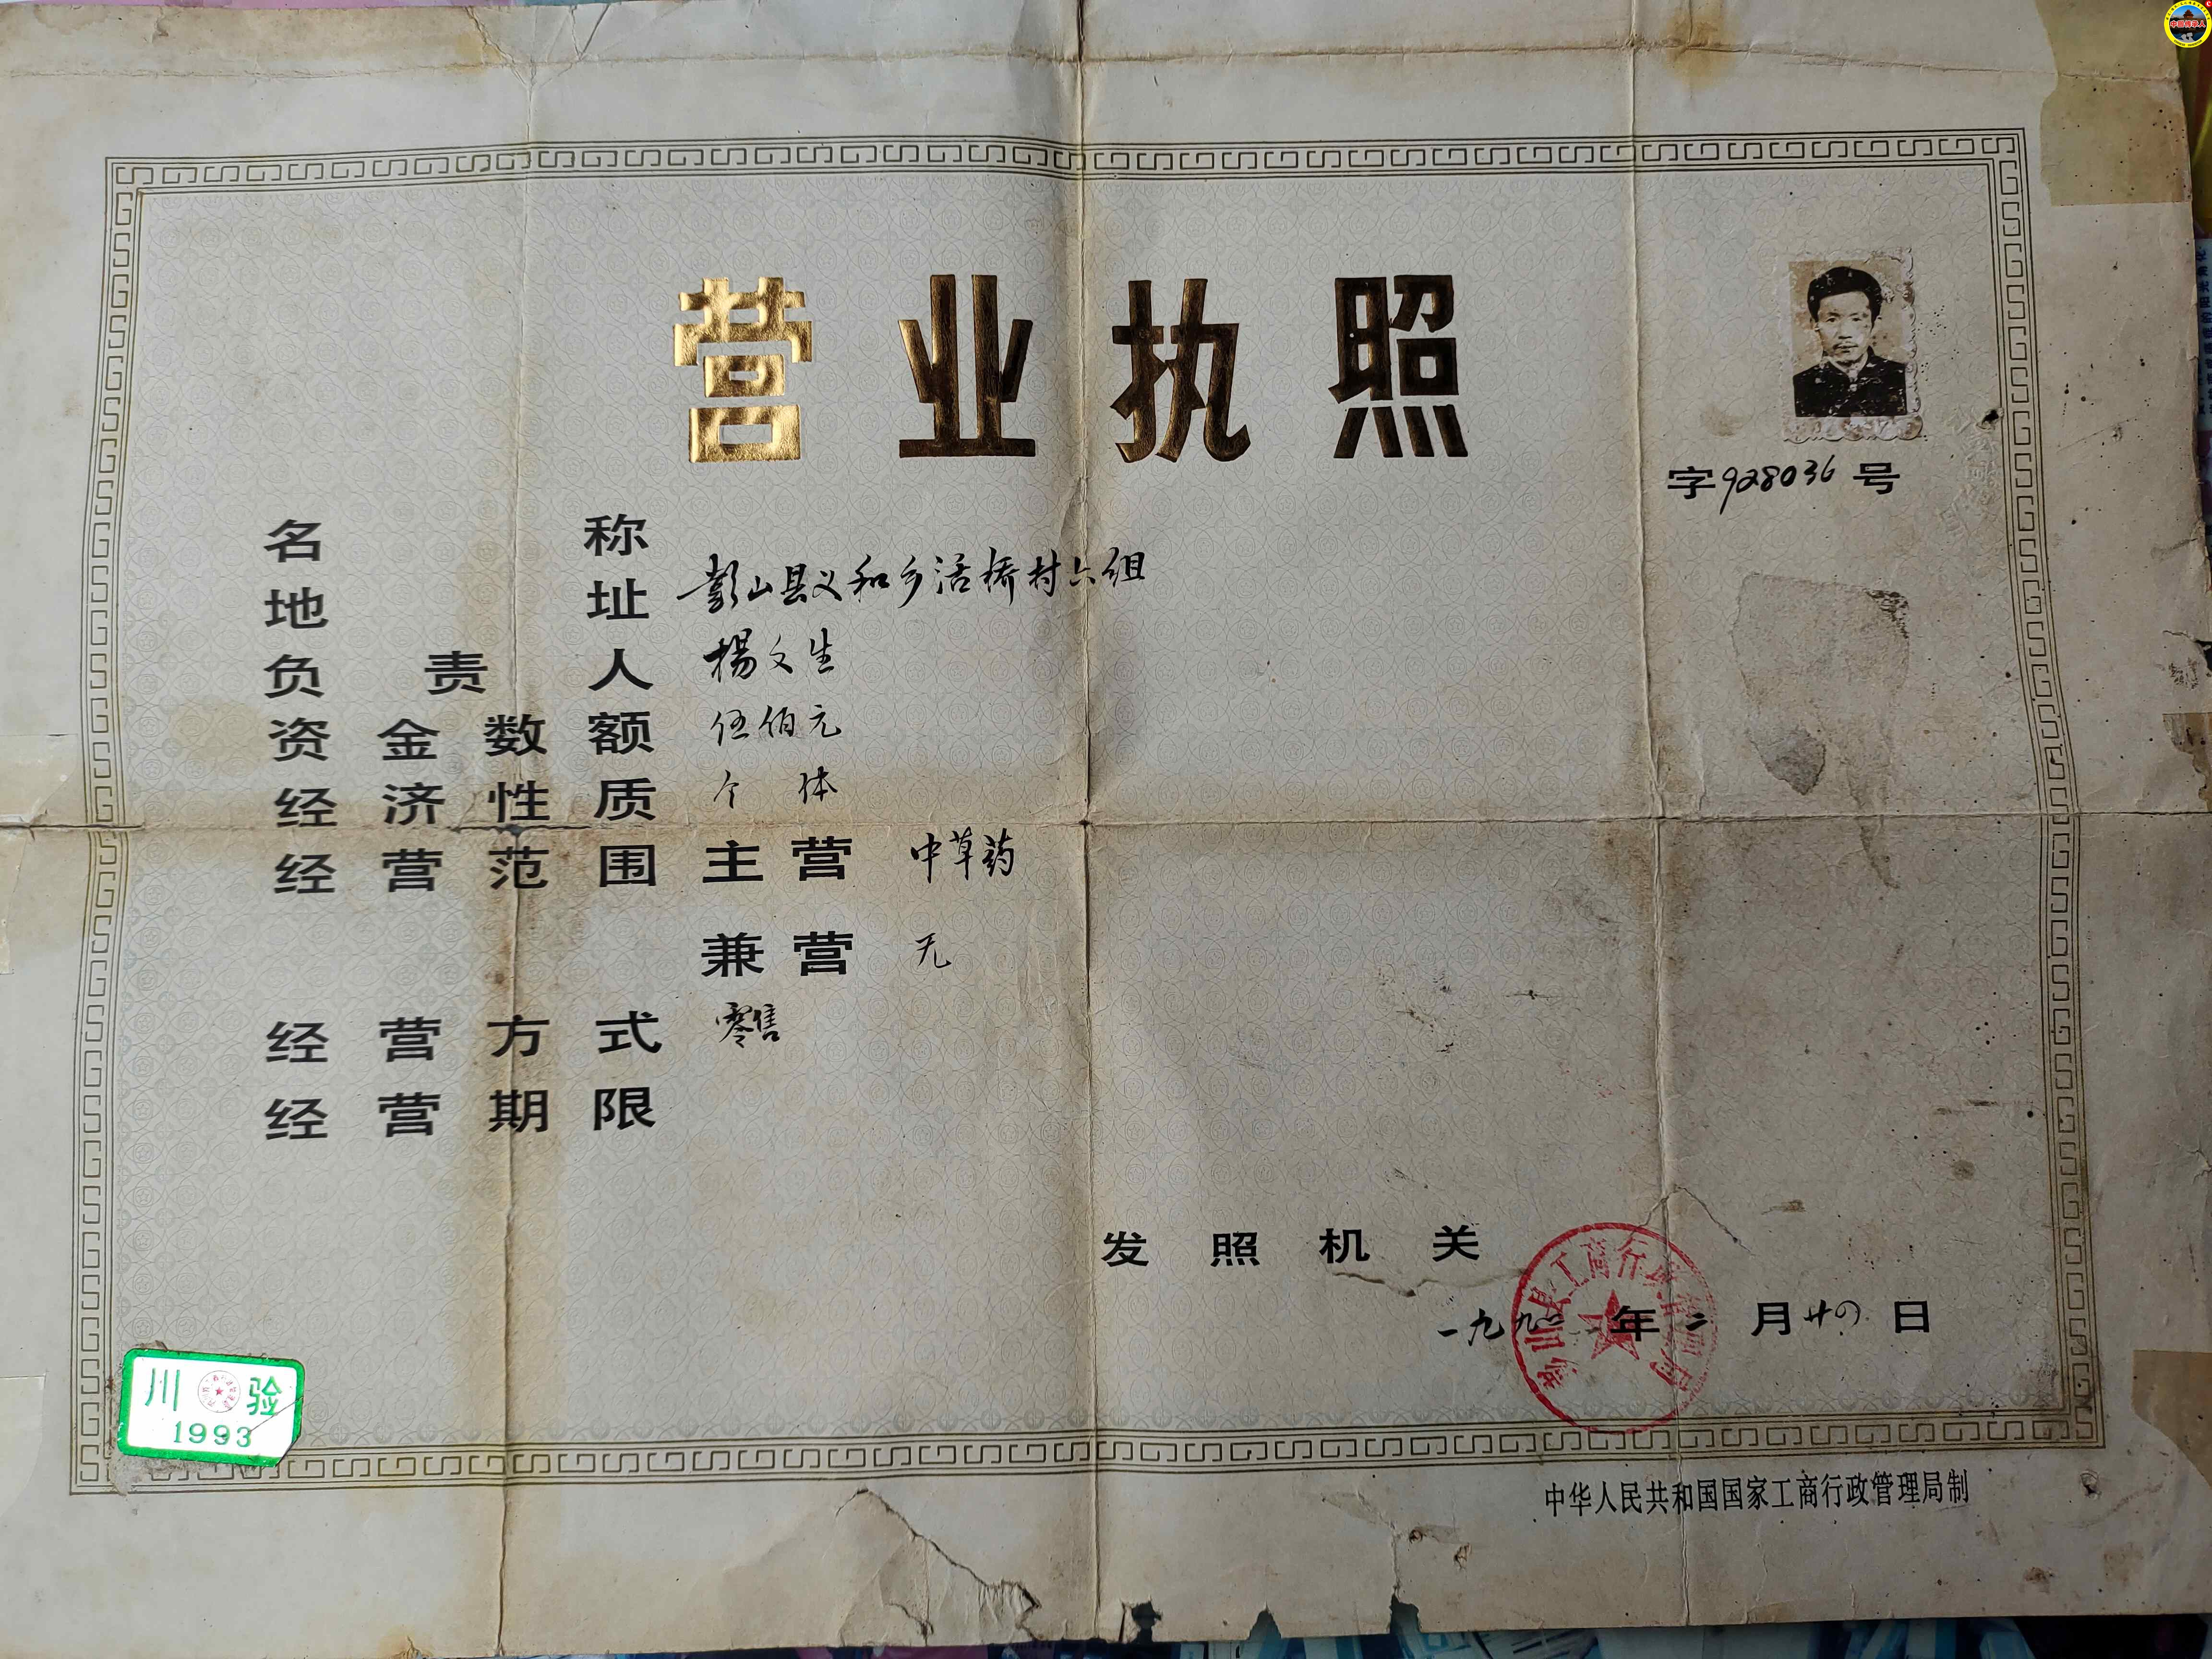 营业执照
字928036号
名称
地址 彭山县义和乡活桥村六组
负责人 楊文生
资金数额 伍佰元
经济性质 个体
经营范围 主营 中草药
兼营 无
经营方式 零售
经营期限
发照机关
彭山县工商行政管理局
一九九二年二月廿四日
川验
1993
中华人民共和国国家工商行政管理局制